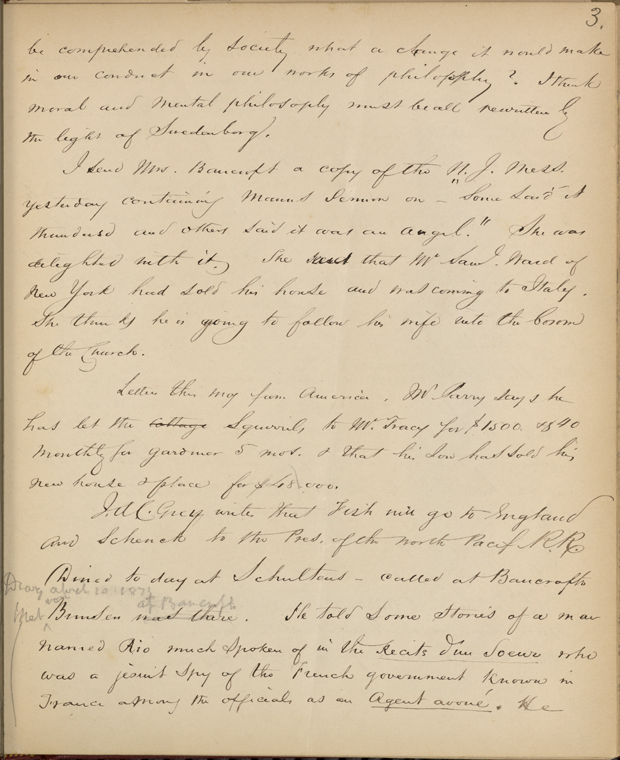 3.
be comprehended by society what a change it would make
in our conduct in our works of philosophy? I think
moral and mental philosophy must be all rewritten by
the light of Swedenborg.
I send Mrs. Bancroft a copy of the N. J. Mess.
yesterday containing Manns Sermon on - "Some said it
thundered and others said it was an angel." She was
delighted with it. She said that Mr Saml. Ward of
New York had sold his house and was coming to Italy.
She thinks he is going to follow his wife into the bosom
of the Church.
Letter this mng from America. Mr Parry says he
has let the cottage Squirrils to Mr. Tracy for $1500. & $40
monthly for gardner 5 mos. & that his son had sold his
new house & place for $48.000.
J. A C. Grey write that Fish will go to England
and Schenck to the Pres. of the North Pacif. R.R.
Dined to day at Schultens - called at Bancrofts
Diary April 10. 187
Met von at Bancrofts
Bunsen was there. He told some stories of a man
named Rio much spoken of in the Recits d'une Soeur who
was a jesuit spy of the French government known in
France among the officials as an Agent avoué. He